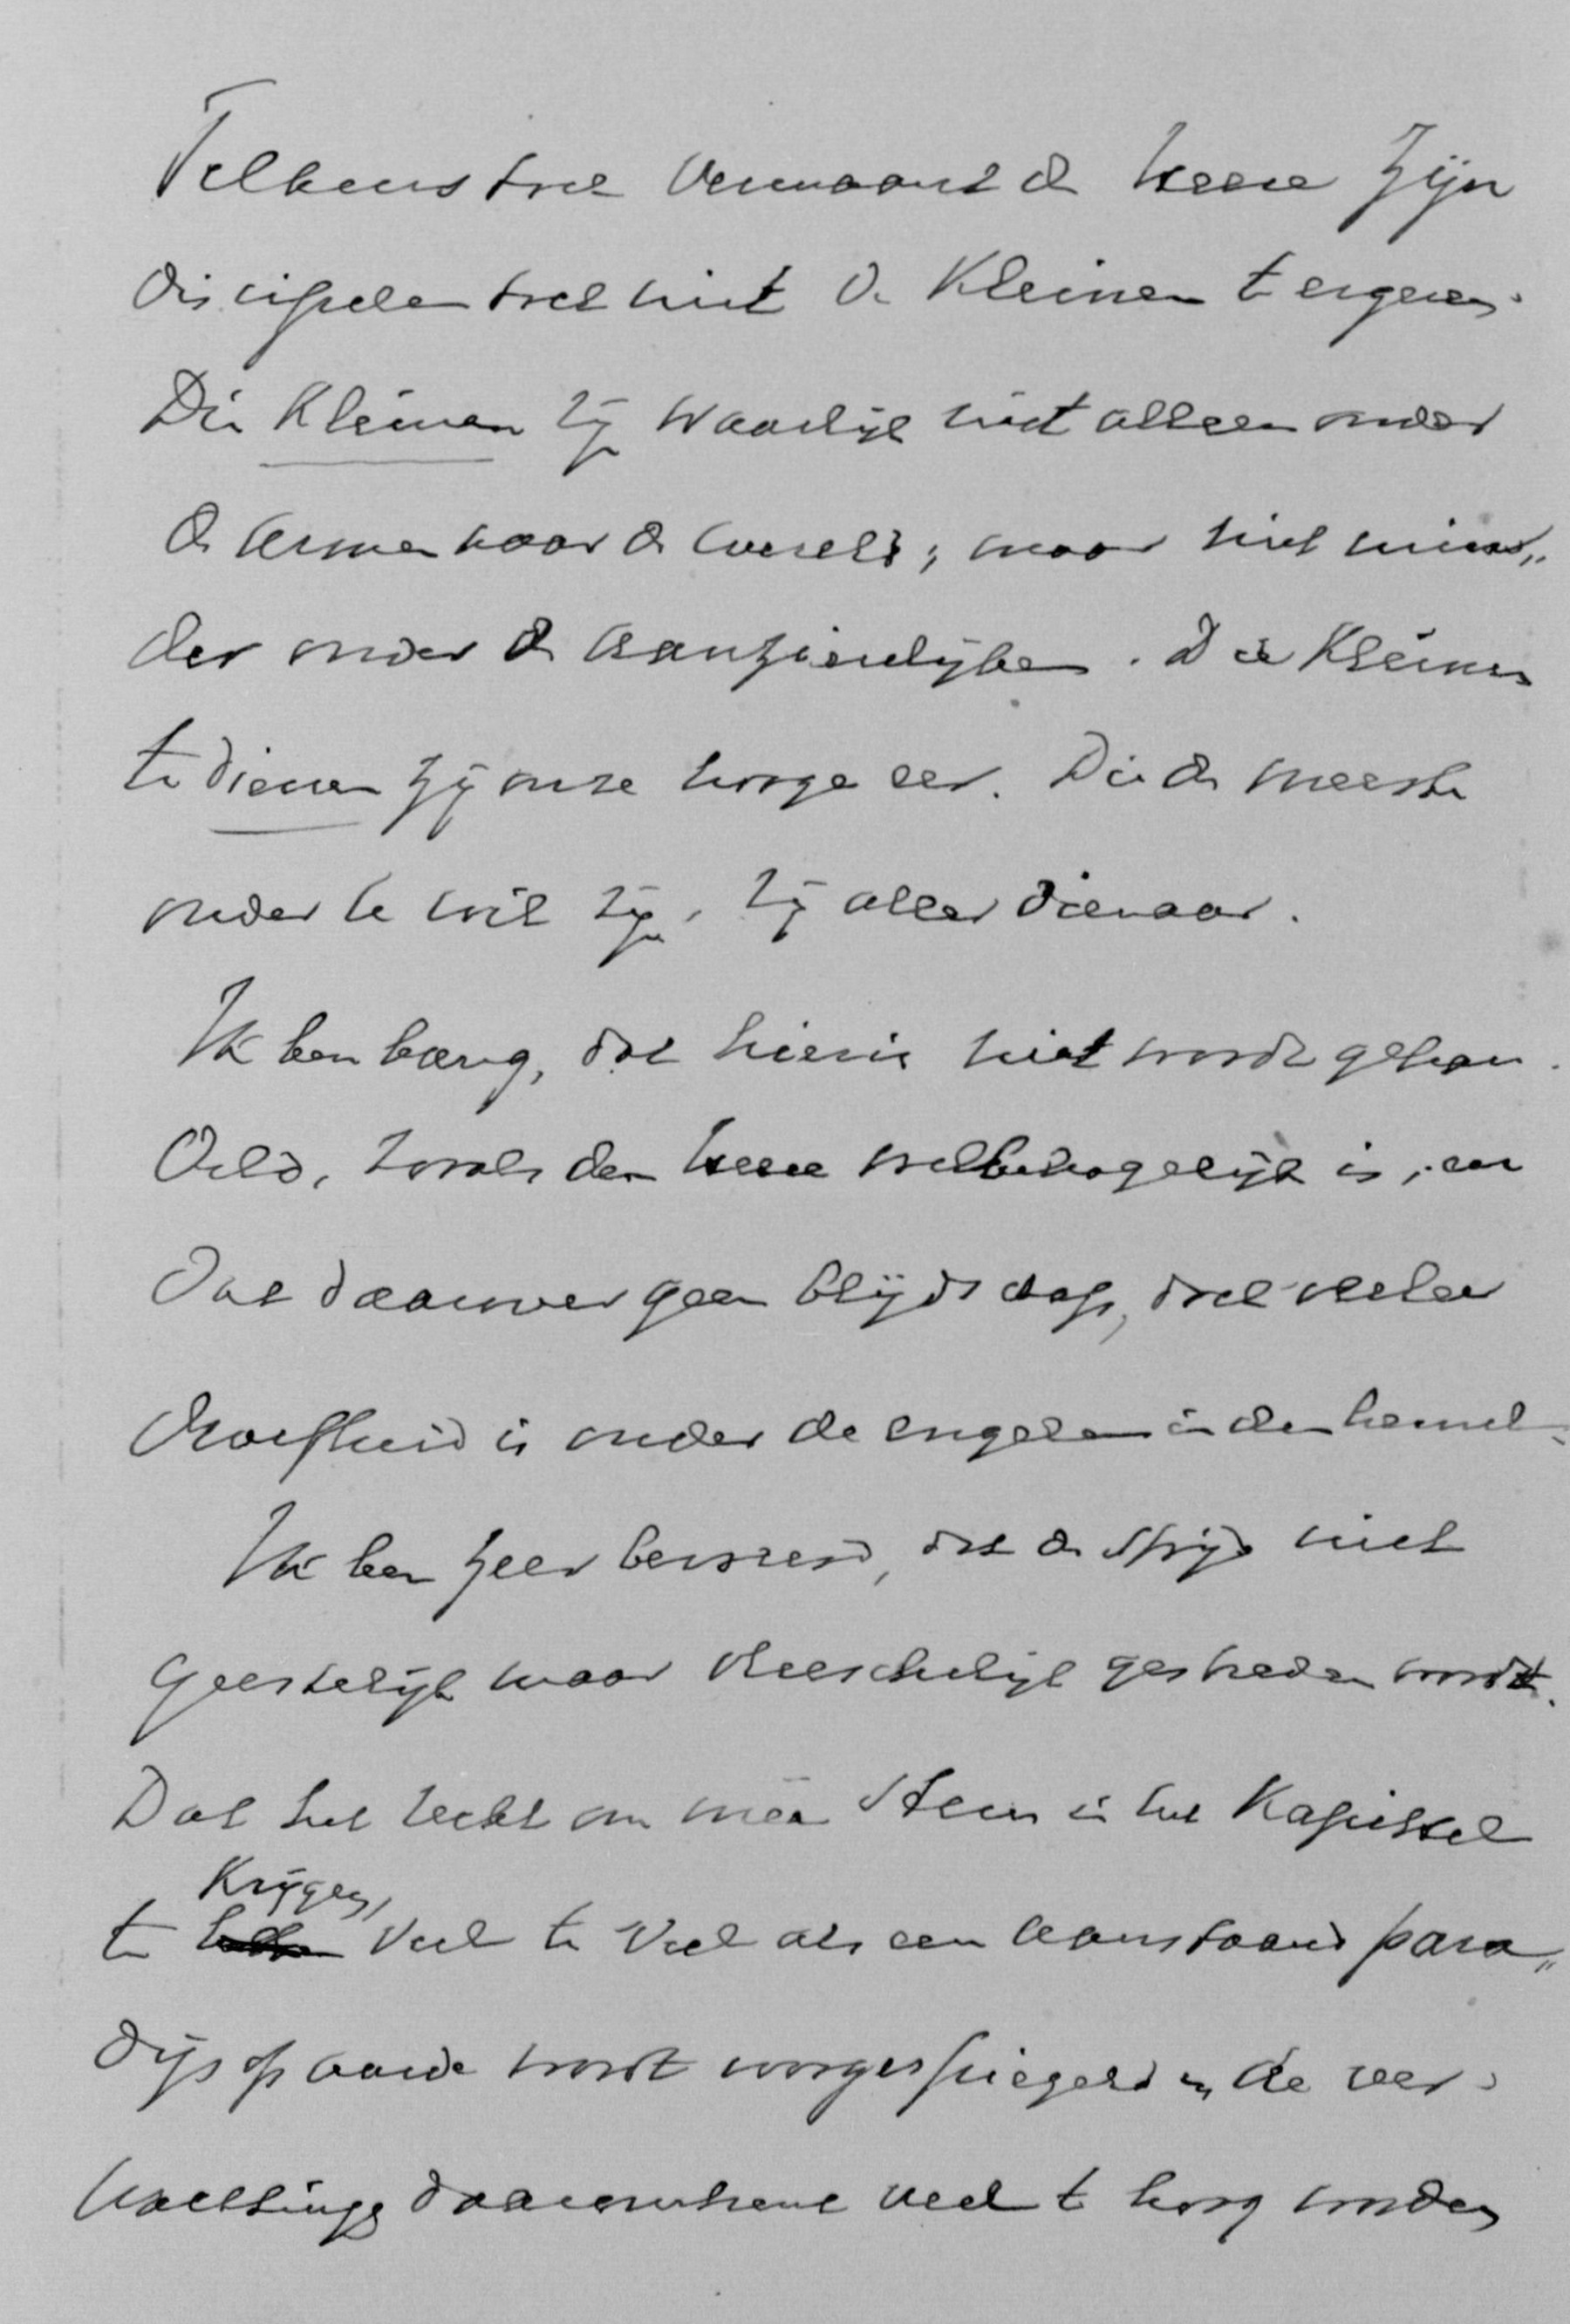 Telkens toch vermaant de Heere zijn
discipelen toch niet de Kleinen te ergeren.
Die Kleinen zijn waarlijk niet alleen onder
de armen naar de wereld; maar niet min„
der onder de aanzienlijken. Die Kleinen
te dienen zij onze hooge eer. Die de meeste
onder U wil zijn, zij aller dienaar.
Ik ben bang, dat hierin niet wordt gehan„
deld, zooals den Heere welbehagelijk is; en
dat daarover geen blijdschap, doch veeleer
droefheid is onder de engelen in den hemel.
Ik ben zeer bevreesd, dat de strijd niet
geestelijk maar vleeschelijk gestreden wordt.
Dat het recht om mee Stem in het Kapittel
te Krijgen, veel te veel als een aanstaand para„
dijs op aarde wordt voorgespiegeld en de ver„
wachtingen daaromtrent veel te hoog worden